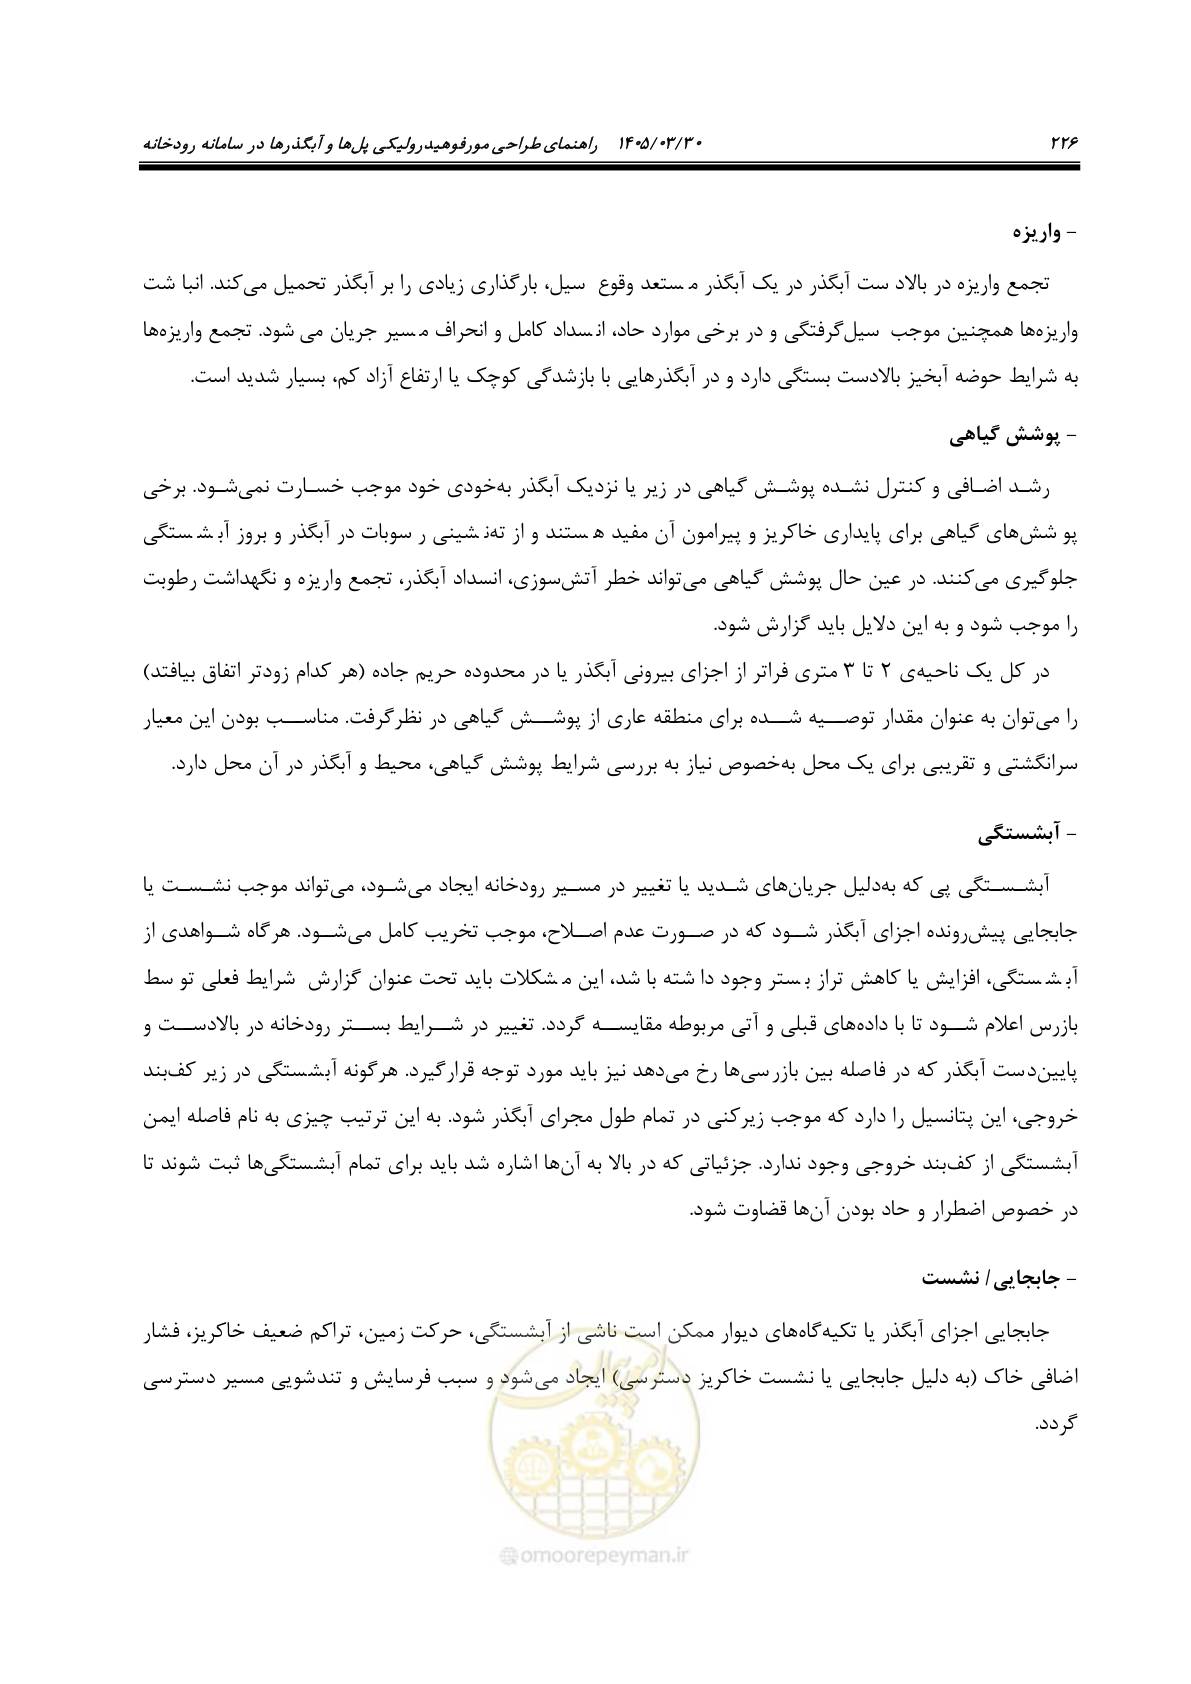 ۲۲۶ ۱۴۰۵/۰۳/۳۰ راهنمای طراحی مورفوهیدرولیکی پل‌ها و آبگذرها در سامانه رودخانه
- واریزه
تجمع واریزه در بالادست آبگذر در یک آبگذر مستعد وقوع سیل، بارگذاری زیادی را بر آبگذر تحمیل می‌کند. انباشت
واریزه‌ها همچنین موجب سیل‌گرفتگی و در برخی موارد حاد، انسداد کامل و انحراف مسیر جریان می شود. تجمع واریزه‌ها
به شرایط حوضه آبخیز بالادست بستگی دارد و در آبگذرهایی با بازشدگی کوچک یا ارتفاع آزاد کم، بسیار شدید است.
- پوشش گیاهی
رشد اضافی و کنترل نشده پوشش گیاهی در زیر یا نزدیک آبگذر به‌خودی خود موجب خسارت نمی‌شود. برخی
پوشش‌های گیاهی برای پایداری خاکریز و پیرامون آن مفید هستند و از ته‌نشینی رسوبات در آبگذر و بروز آبشستگی
جلوگیری می‌کنند. در عین حال پوشش گیاهی می‌تواند خطر آتش‌سوزی، انسداد آبگذر، تجمع واریزه و نگهداشت رطوبت
را موجب شود و به این دلایل باید گزارش شود.
در کل یک ناحیه‌ی ۲ تا ۳ متری فراتر از اجزای بیرونی آبگذر یا در محدوده حریم جاده (هر کدام زودتر اتفاق بیافتد)
را می‌توان به عنوان مقدار توصیه شده برای منطقه عاری از پوشش گیاهی در نظرگرفت. مناسب بودن این معیار
سرانگشتی و تقریبی برای یک محل به‌خصوص نیاز به بررسی شرایط پوشش گیاهی، محیط و آبگذر در آن محل دارد.
- آبشستگی
آبشستگی پی که به‌دلیل جریان‌های شدید یا تغییر در مسیر رودخانه ایجاد می‌شود، می‌تواند موجب نشست یا
جابجایی پیش‌رونده اجزای آبگذر شود که در صورت عدم اصلاح، موجب تخریب کامل می‌شود. هرگاه شواهدی از
آبشستگی، افزایش یا کاهش تراز بستر وجود داشته باشد، این مشکلات باید تحت عنوان گزارش شرایط فعلی توسط
بازرس اعلام شود تا با داده‌های قبلی و آتی مربوطه مقایسه گردد. تغییر در شرایط بستر رودخانه در بالادست و
پایین‌دست آبگذر که در فاصله بین بازرسی‌ها رخ می‌دهد نیز باید مورد توجه قرارگیرد. هرگونه آبشستگی در زیر کف‌بند
خروجی، این پتانسیل را دارد که موجب زیرکنی در تمام طول مجرای آبگذر شود. به این ترتیب چیزی به نام فاصله ایمن
آبشستگی از کف‌بند خروجی وجود ندارد. جزئیاتی که در بالا به آن‌ها اشاره شد باید برای تمام آبشستگی‌ها ثبت شوند تا
در خصوص اضطرار و حاد بودن آن‌ها قضاوت شود.
- جابجایی/ نشست
جابجایی اجزای آبگذر یا تکیه‌گاه‌های دیوار ممکن است ناشی از آبشستگی، حرکت زمین، تراکم ضعیف خاکریز، فشار
اضافی خاک (به دلیل جابجایی یا نشست خاکریز دسترسی) ایجاد می‌شود و سبب فرسایش و تندشویی مسیر دسترسی
گردد.
امور پیمان
@omoorepeyman.ir